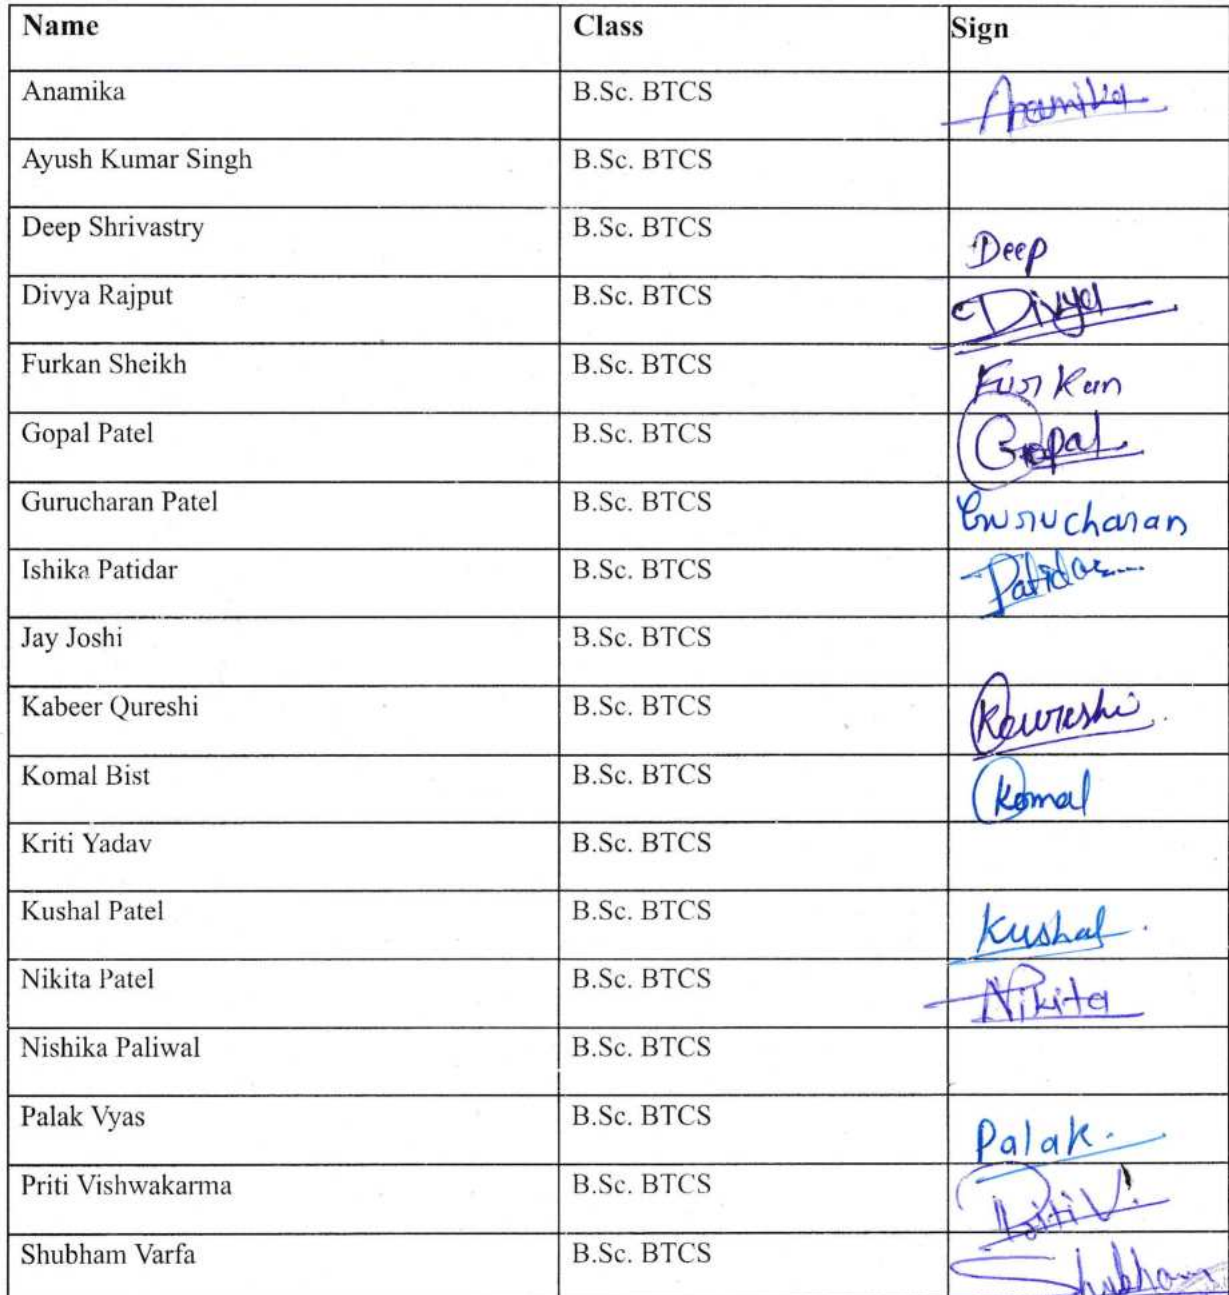 Name Class Sign
Anamika B.Sc. BTCS Anamika
Ayush Kumar Singh B.Sc. BTCS
Deep Shrivastry B.Sc. BTCS Deep
Divya Rajput B.Sc. BTCS Divya
Furkan Sheikh B.Sc. BTCS Furkan
Gopal Patel B.Sc. BTCS Gopal
Gurucharan Patel B.Sc. BTCS Gurucharan
Ishika Patidar B.Sc. BTCS Patidar
Jay Joshi B.Sc. BTCS
Kabeer Qureshi B.Sc. BTCS
Komal Bist B.Sc. BTCS Komal
Kriti Yadav B.Sc. BTCS
Kushal Patel B.Sc. BTCS Kushal
Nikita Patel B.Sc. BTCS Nikita
Nishika Paliwal B.Sc. BTCS
Palak Vyas B.Sc. BTCS Palak.
Priti Vishwakarma B.Sc. BTCS Priti V.
Shubham Varfa B.Sc. BTCS Shubham